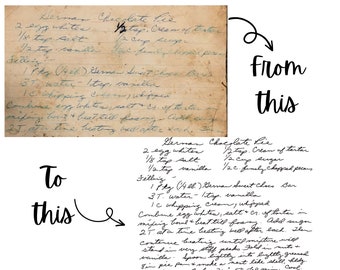 German Chocolate Pie
2 egg whites 1/2 tsp. Cream of tartar
1/8 tsp salt 1/2 cup sugar
1/2 tsp vanilla 1/2 C finely chopped pecans
Filling -
1 Pkg (4oz) German Sweet Choc Bar
3 T water - 1 tsp vanilla
1 C whipping Cream, whipped
Combine egg whites, salt & Cr. of tartar in
mixing bowl & beat till foamy Add sugar
2 T at a time beating well after each
From
this
To
this
German Chocolate Pie
2 egg whites 1/2 tsp. Cream of tartar
1/8 tsp salt 1/2 cup sugar
1/2 tsp vanilla 1/2 C finely chopped pecans
Filling -
1 Pkg (4oz) German Sweet Choc Bar
3 T water - 1 tsp vanilla
1 C whipping Cream, whipped
Combine egg whites, salt & Cr. of tartar in
mixing bowl & beat till foamy. Add sugar
2 T at a time beating well after each. Then
continue beating until mixture will
stand in very stiff peaks. Fold in nuts &
vanilla. Spoon lightly into lightly greased
8 in pie pan & make a nest like shell